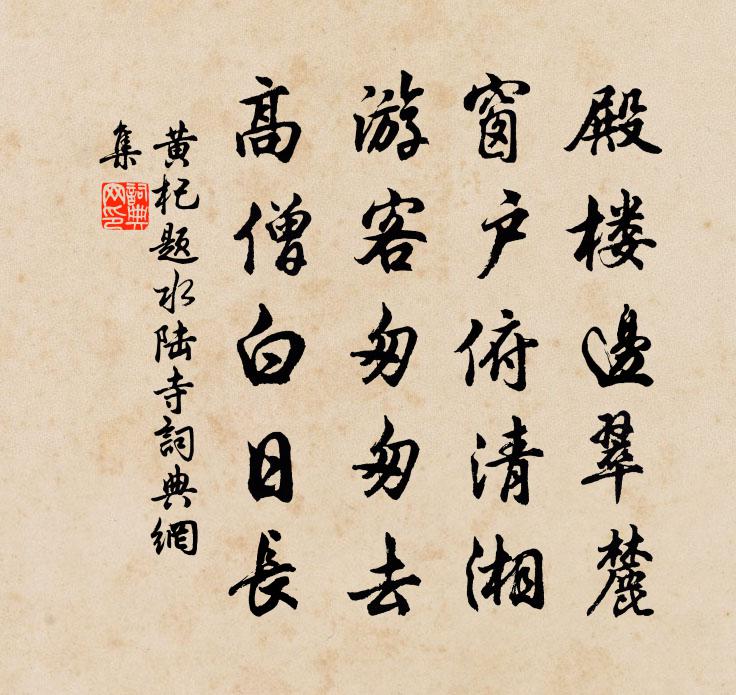 殿楼邊翠麓
窗户俯清湘
游客匆匆去
高僧白日長
黄杞题水陆寺詞典網
集
詞典
网印